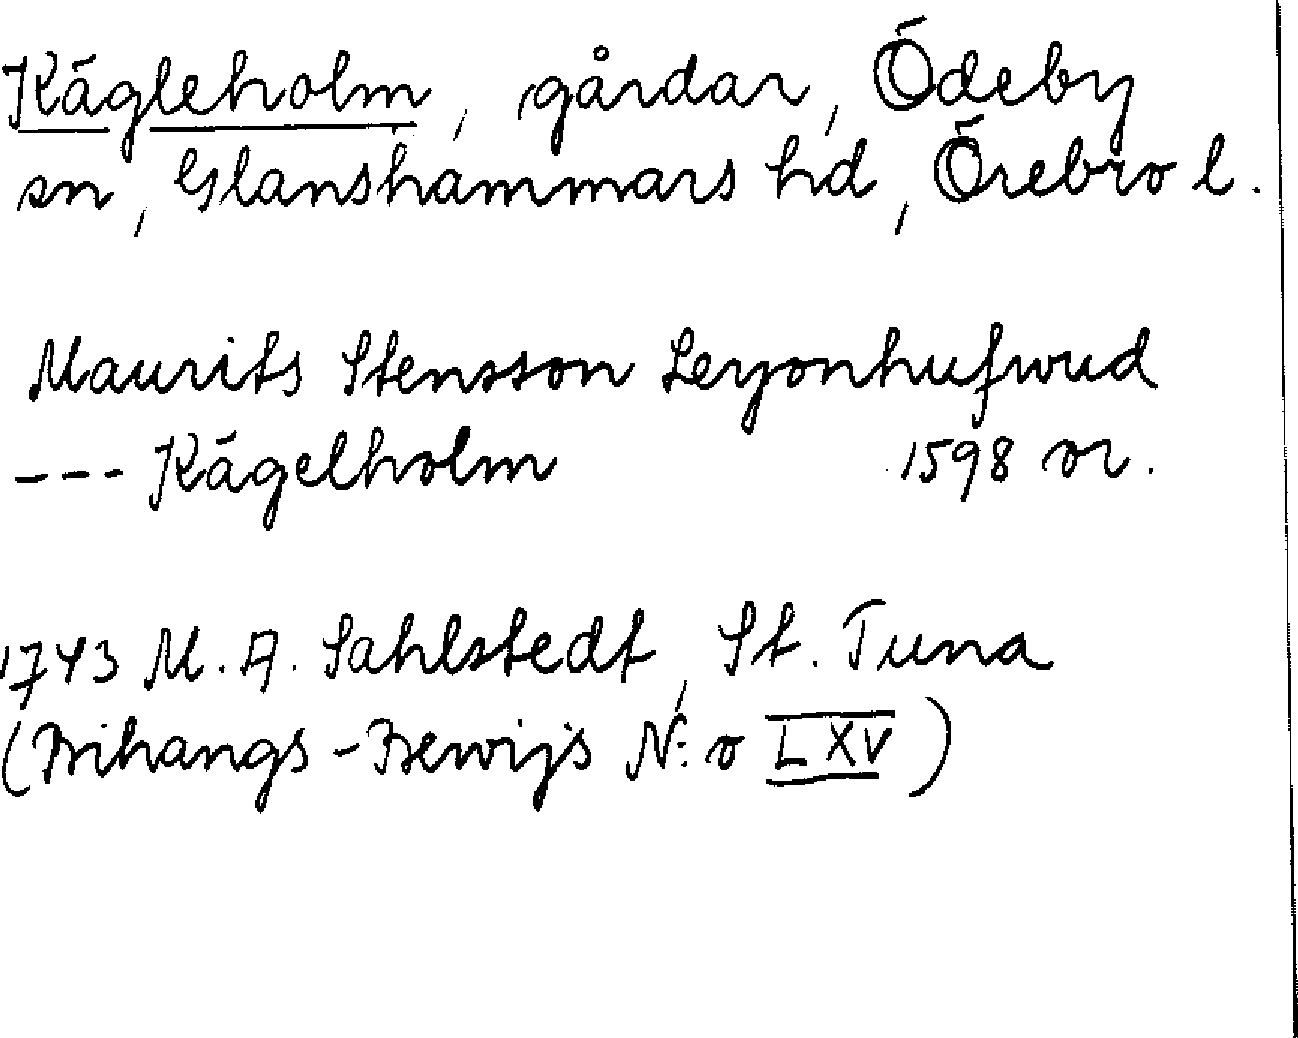 Kägleholm, gårdar, Ödeby
sn, Glanshammars hd, Örebro l.
Maurits Stensson Leyonhufwud
--- Kägelholm 1598 or.
1743 M. A. Sahlstedt, St. Tuna
(Bihangs-Bewijs N:o LXV)